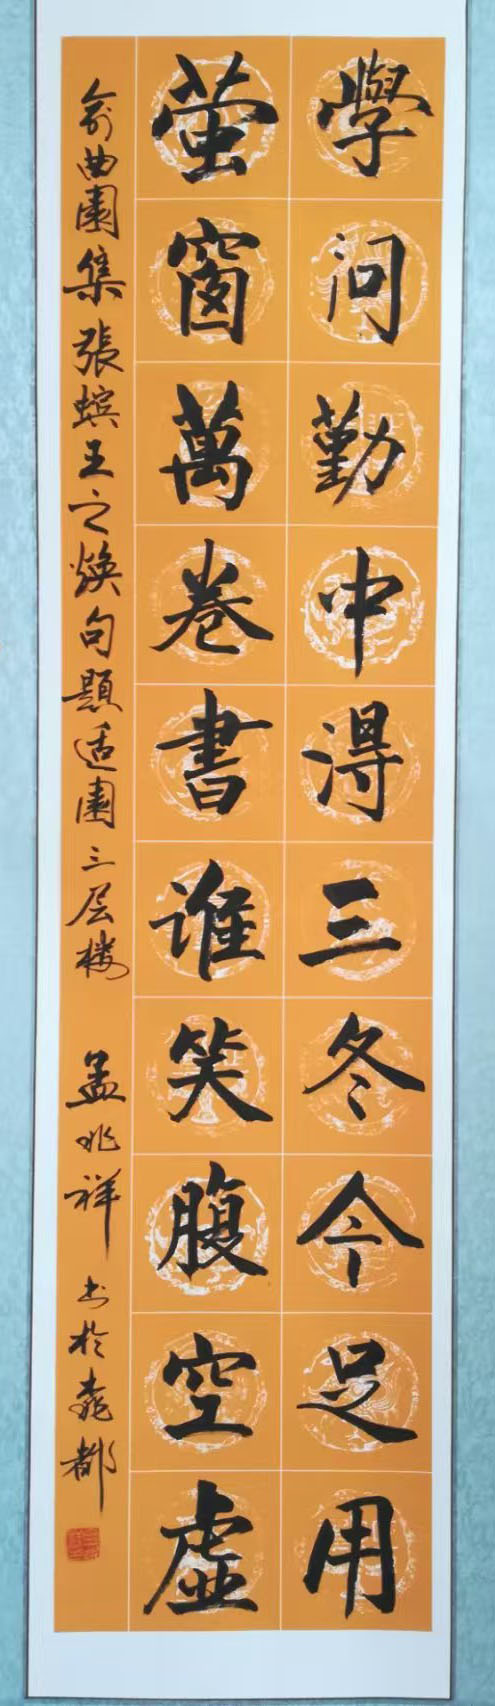 學问勤中得三冬今足用
萤窗萬卷書谁笑腹空虚
俞曲園集張蠙王之焕句題适園三层楼 孟兆祥 书於堯都